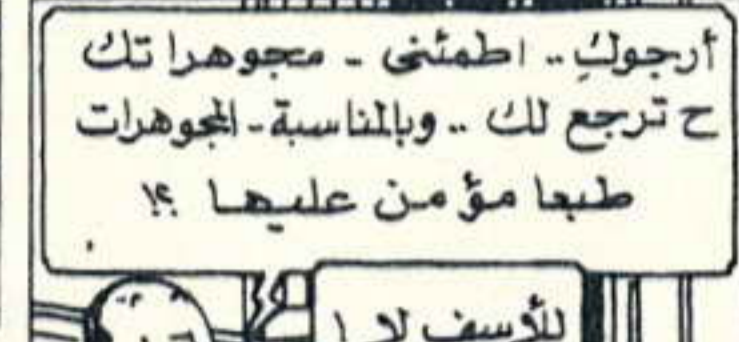 أرجوكِ.. اطمئنى - مجوهراتك
ح ترجع لك .. وبالمناسبة - المجوهرات
طبعا مؤمن عليها ؟!
للأسف لا !